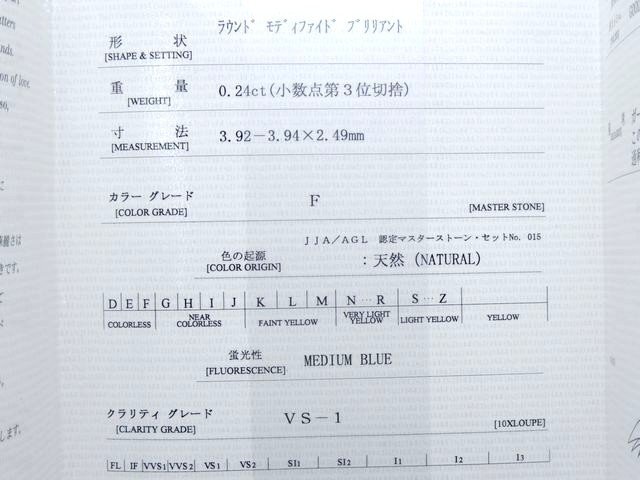 ラウンド モディファイド ブリリアント
形 状
[SHAPE & SETTING]
重 量
[WEIGHT]
0.24ct(小数点第3位切捨)
寸 法
[MEASUREMENT]
3.92－3.94×2.49mm
カラー グレード
[COLOR GRADE]
F
[MASTER STONE]
JJA/AGL 認定マスターストーン・セットNo. 015
色の起源
[COLOR ORIGIN]
:天然 (NATURAL)
D E F G H I J K L M N … R S … Z
COLORLESS NEAR COLORLESS FAINT YELLOW VERY LIGHT YELLOW LIGHT YELLOW YELLOW
蛍光性
[FLUORESCENCE]
MEDIUM BLUE
クラリティ グレード
[CLARITY GRADE]
VS－1
[10XLOUPE]
FL IF VVS1 VVS2 VS1 VS2 SI1 SI2 I1 I2 I3